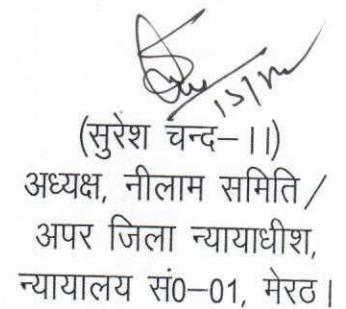 (सुरेश चन्द–।।)
अध्यक्ष, नीलाम समिति /
अपर जिला न्यायाधीश,
न्यायालय सं0–01, मेरठ।